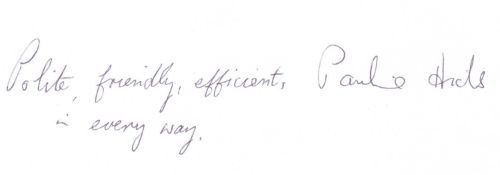 Polite, friendly, efficient,
in every way.